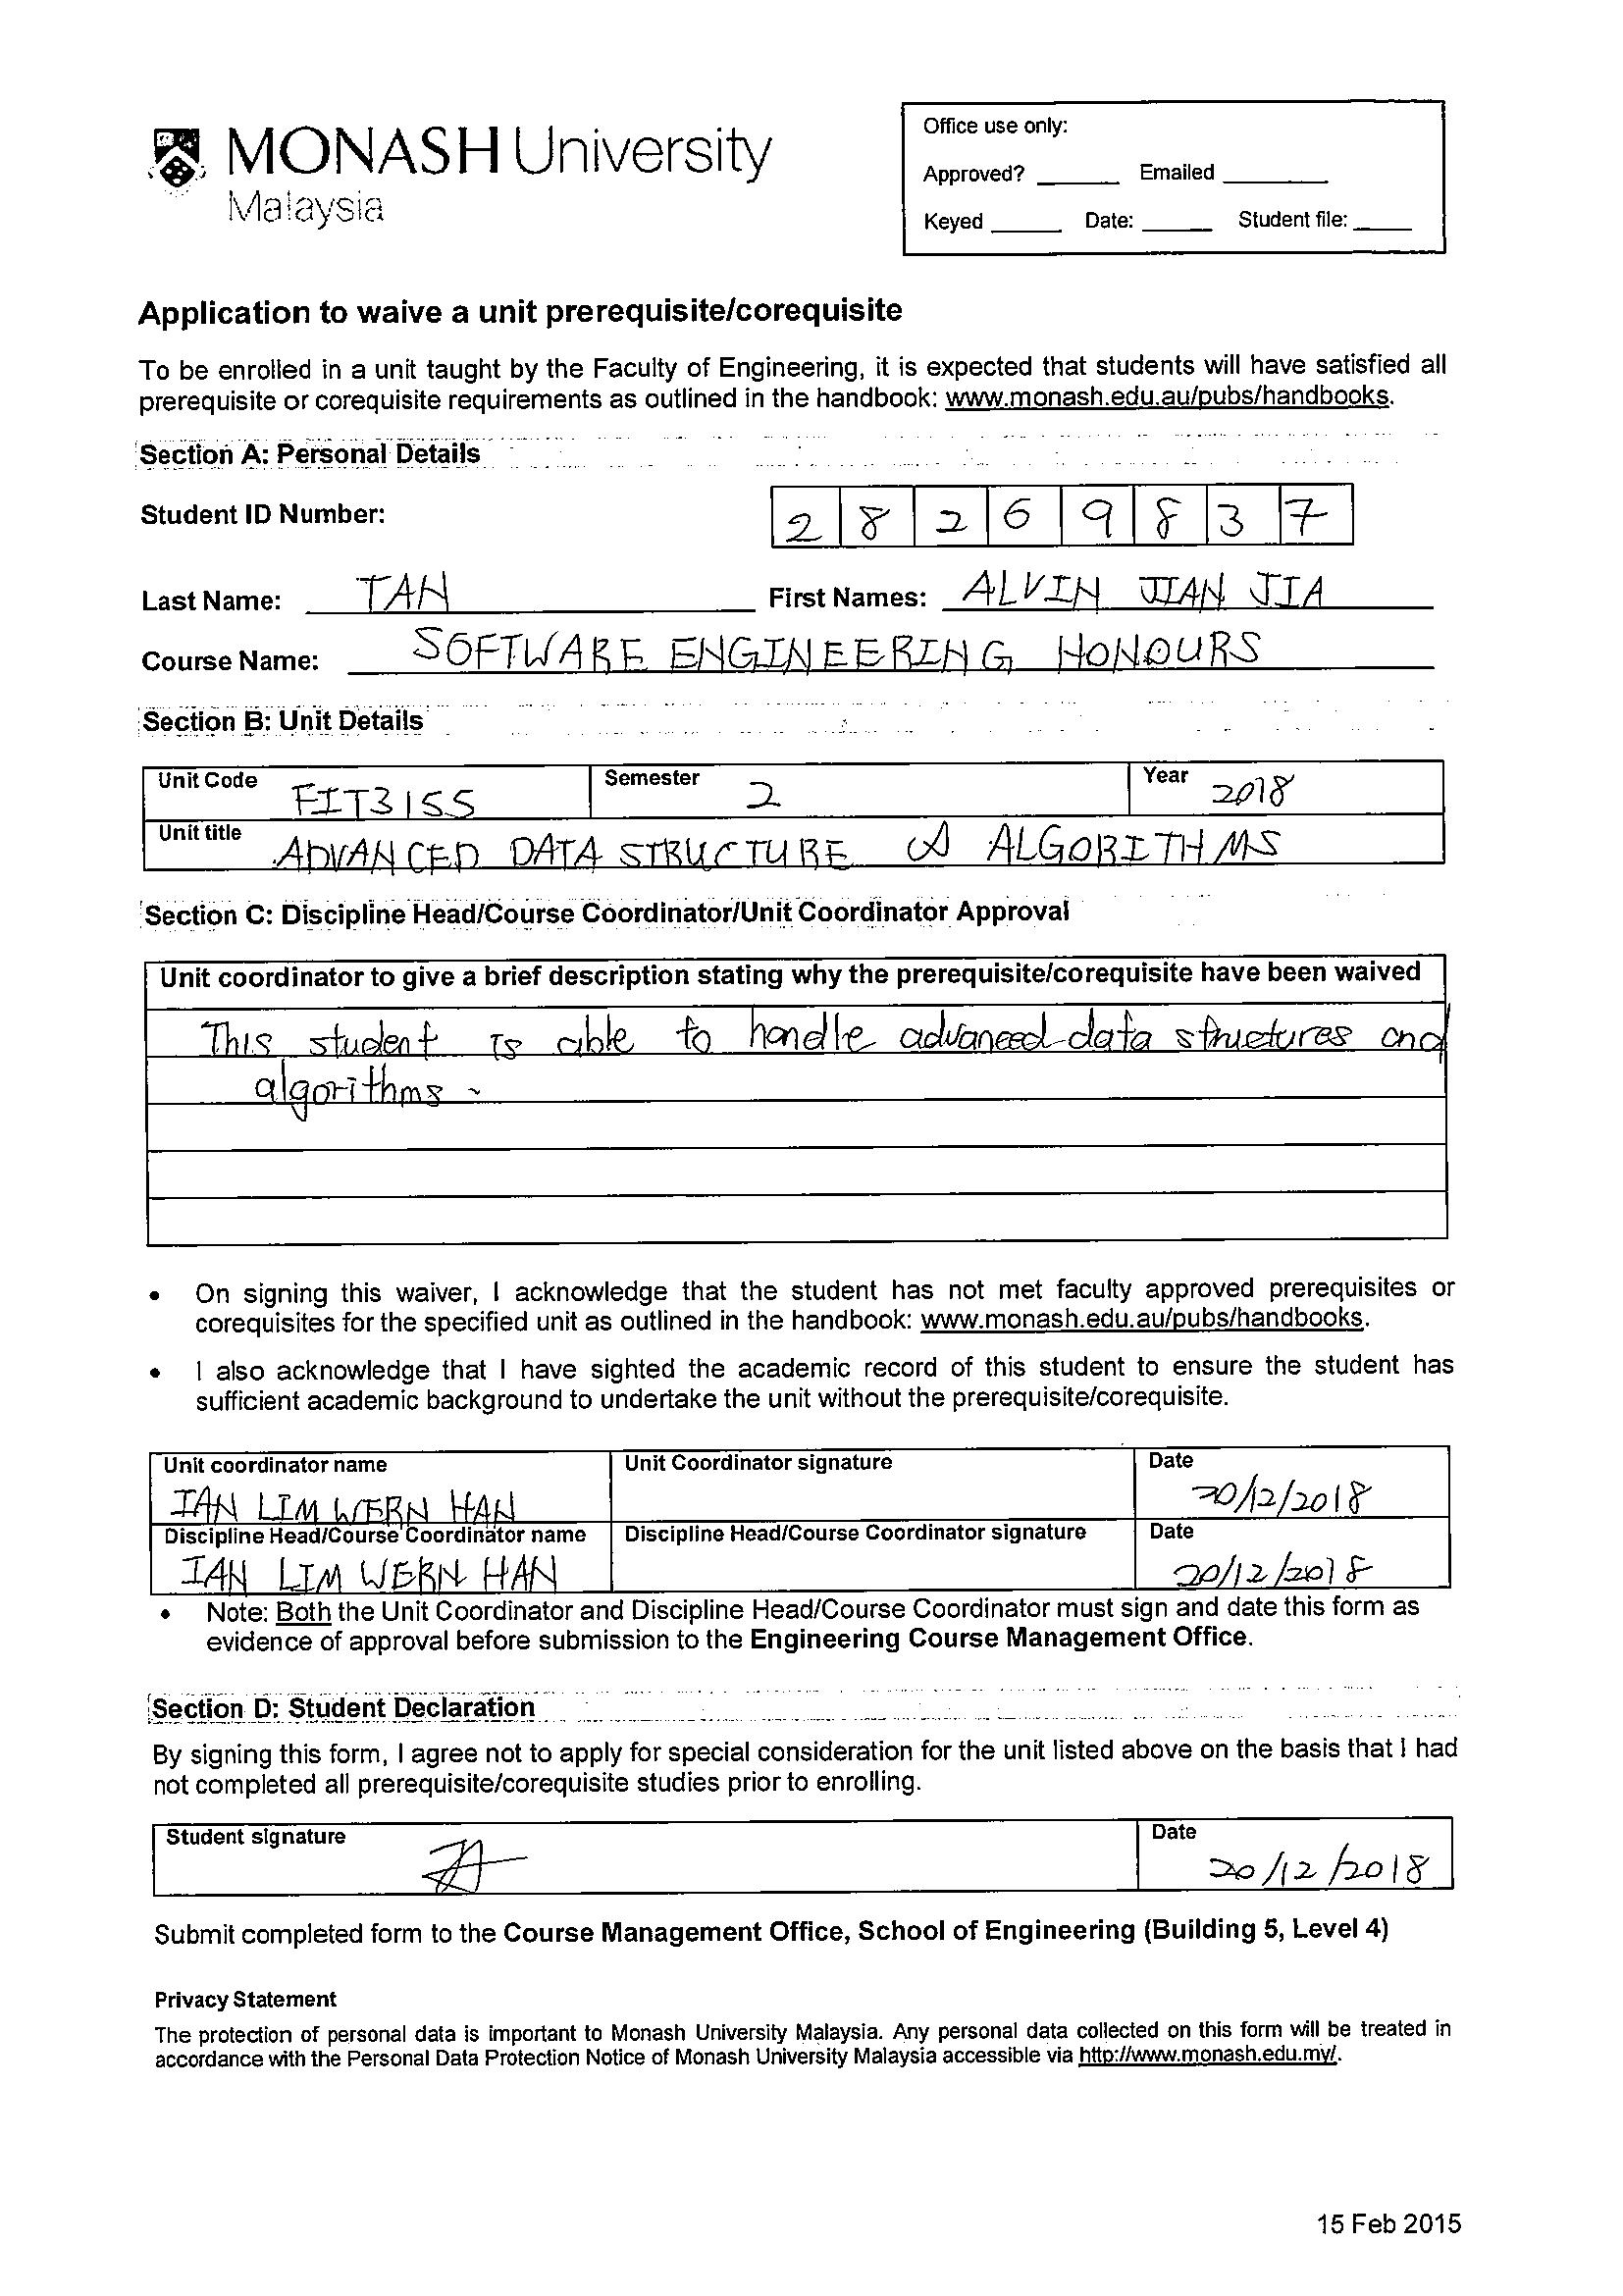 MONASH University
Malaysia
Office use only:
Approved? ______ Emailed ______
Keyed ______ Date: ______ Student file: ______
Application to waive a unit prerequisite/corequisite
To be enrolled in a unit taught by the Faculty of Engineering, it is expected that students will have satisfied all
prerequisite or corequisite requirements as outlined in the handbook: www.monash.edu.au/pubs/handbooks.
Section A: Personal Details
Student ID Number: 2 8 2 6 9 8 3 7
Last Name: TAN First Names: ALVIN JIAN JIA
Course Name: SOFTWARE ENGINEERING HONOURS
Section B: Unit Details
Unit Code FIT3155 Semester 2 Year 2018
Unit title ADVANCED DATA STRUCTURE & ALGORITHMS
Section C: Discipline Head/Course Coordinator/Unit Coordinator Approval
Unit coordinator to give a brief description stating why the prerequisite/corequisite have been waived
This student is able to handle advanced data structures and
algorithms.
• On signing this waiver, I acknowledge that the student has not met faculty approved prerequisites or
corequisites for the specified unit as outlined in the handbook: www.monash.edu.au/pubs/handbooks.
• I also acknowledge that I have sighted the academic record of this student to ensure the student has
sufficient academic background to undertake the unit without the prerequisite/corequisite.
Unit coordinator name Unit Coordinator signature Date
IAN LIM WERN HAN 20/12/2018
Discipline Head/Course Coordinator name Discipline Head/Course Coordinator signature Date
IAN LIM WERN HAN 20/12/2018
• Note: Both the Unit Coordinator and Discipline Head/Course Coordinator must sign and date this form as
evidence of approval before submission to the Engineering Course Management Office.
Section D: Student Declaration
By signing this form, I agree not to apply for special consideration for the unit listed above on the basis that I had
not completed all prerequisite/corequisite studies prior to enrolling.
Student signature Date
20/12/2018
Submit completed form to the Course Management Office, School of Engineering (Building 5, Level 4)
Privacy Statement
The protection of personal data is important to Monash University Malaysia. Any personal data collected on this form will be treated in
accordance with the Personal Data Protection Notice of Monash University Malaysia accessible via http://www.monash.edu.my/.
15 Feb 2015